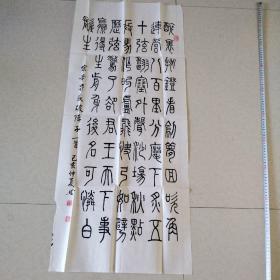 醉裏挑燈看劍夢回吹角
連營八百里分麾下炙五
十弦翻塞外聲沙場秋點
兵馬作的盧飛快弓如霹
靂弦驚了卻君王天下事
贏得生前身後名可憐白
髮生
宋辛棄疾破陣子一首 己亥仲夏